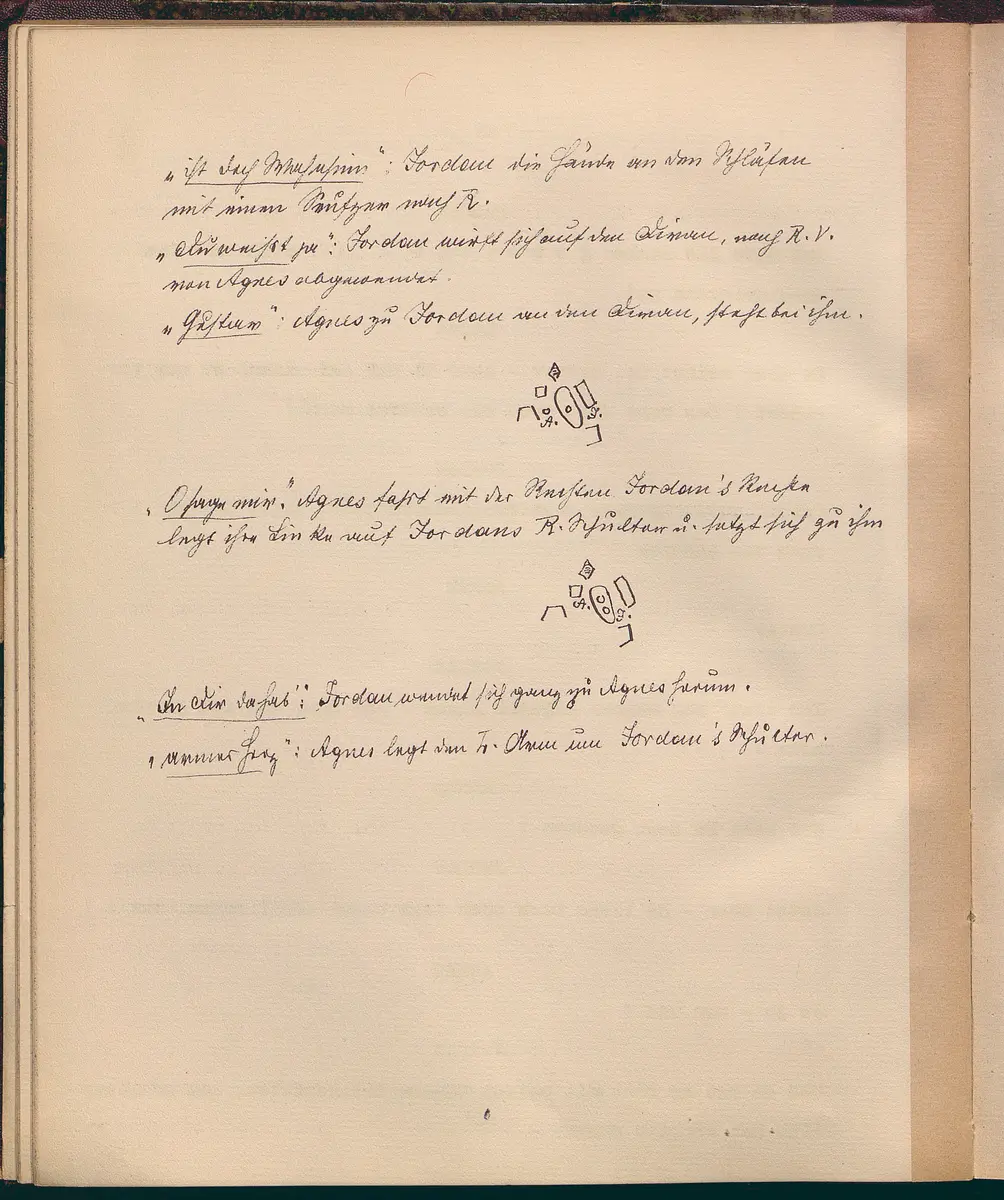 „ist doch Wahnsinn": Jordan die Hände an den Schläfen
mit einen Seufzer nach R.
„Du weisst ja": Jordan wirft sich auf den Divan, nach R. V.
von Agnes abgewendet.
„Gustav": Agnes zu Jordan an den Divan, steht bei ihm.
A. J.
„O sage mir." Agnes fasst mit der Rechten Jordan's Rechte
legt ihre Linke auf Jordans R. Schulter u. setzt sich zu ihm
A. J.
„In Dir da hab'": Jordan wendet sich ganz zu Agnes herum.
„armes Herz": Agnes legt den L. Arm um Jordan's Schulter.